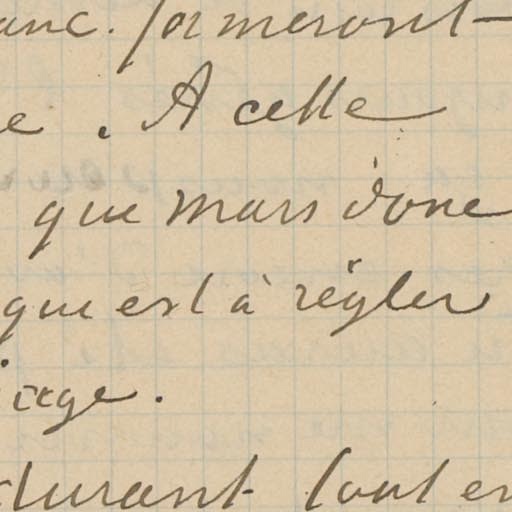 anc. formeront
e. A cette
que mars donc
qui est à régler
iage.
durant tout en